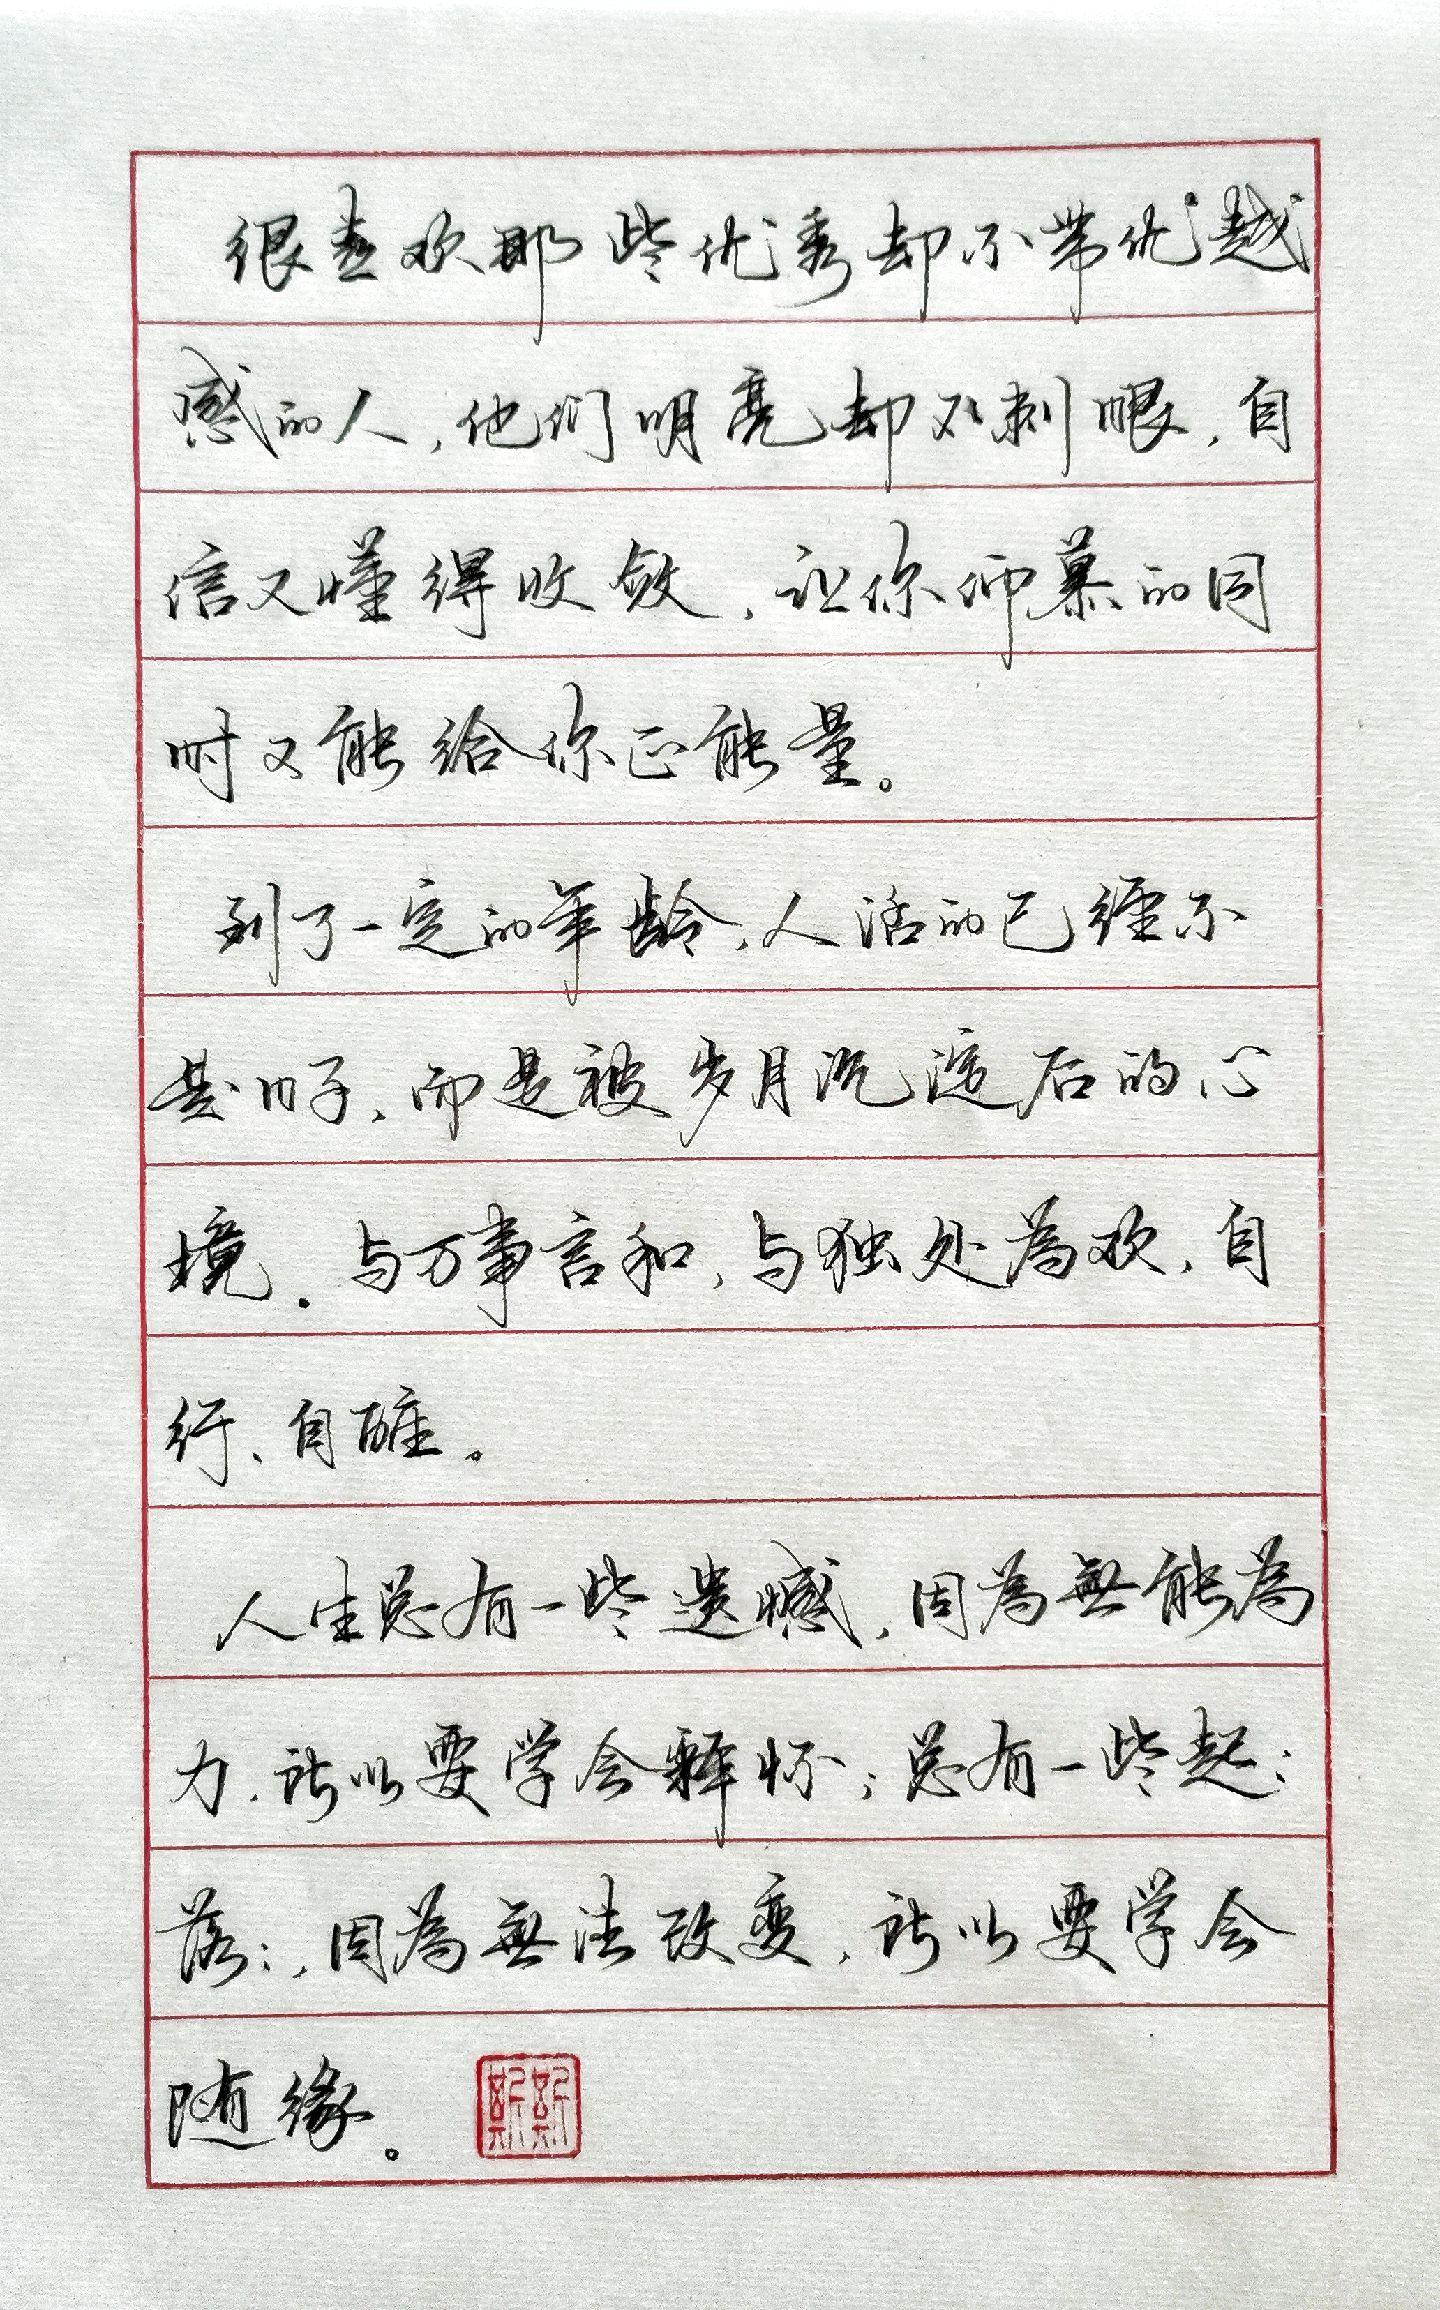 很喜欢那些优秀却不带优越
感的人，他们明亮却不刺眼，自
信又懂得收敛，让你仰慕的同
时又能给你正能量。
到了一定的年龄，人活的已经不
是日子，而是被岁月沉淀后的心
境。与万事言和，与独处为欢，自
行、自醒。
人生总有一些遗憾，因为無能为
力，所以要学会释怀；总有一些起：
落：，因为無法改变，所以要学会
随缘。
斯斯